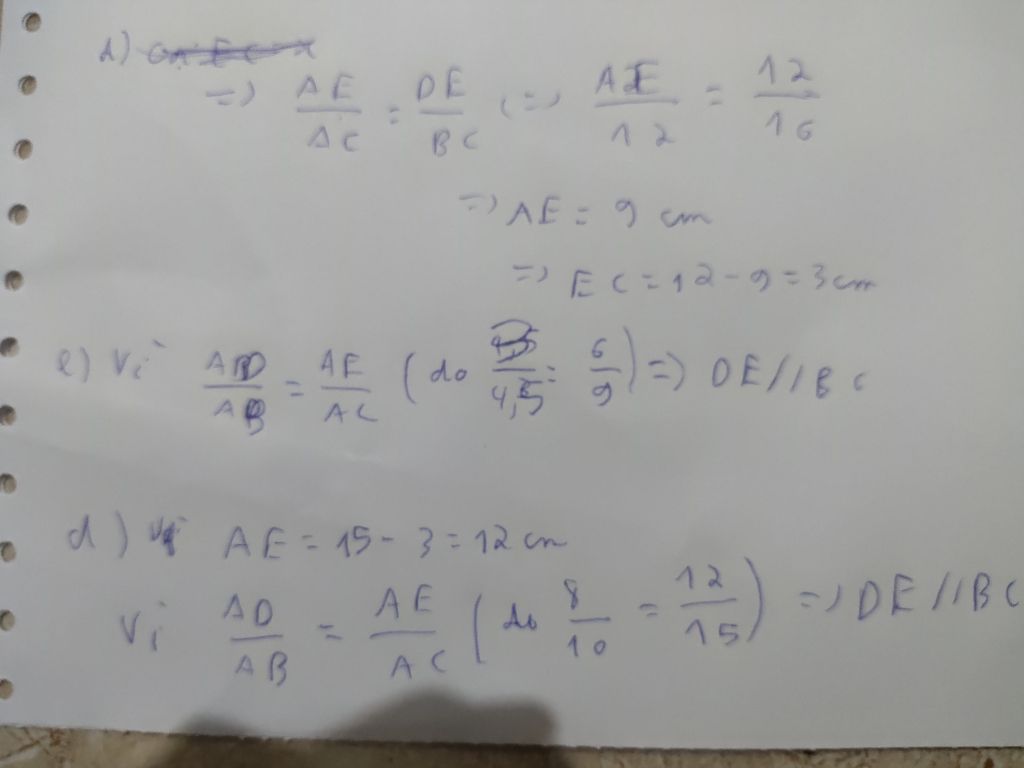 d)
=> AE/AC = DE/BC (=> AE/12 = 12/16
=> AE = 9 cm
=> EC = 12 - 9 = 3 cm
e) Vì AD/AB = AE/AC (do 3/4,5 = 6/9) => DE//BC
d) AE = 15 - 3 = 12 cm
Vì AD/AB = AE/AC (do 8/10 = 12/15) => DE//BC